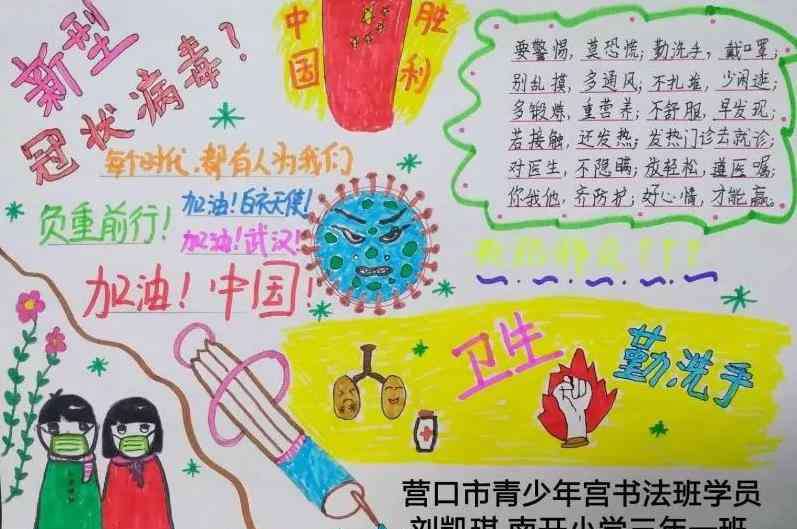 新型
冠状病毒？
每个时代，都有人为我们
负重前行！
加油！白衣天使！
加油！武汉！
加油！中国！
中国
胜利
要警惕，莫恐慌；勤洗手，戴口罩；
别乱摸，多通风；不扎堆，少闲逛；
多锻炼，重营养；不舒服，早发现；
若接触，还发热；发热门诊去就诊；
对医生，不隐瞒；放轻松，遵医嘱；
你我他，齐防护；好心情，才能赢。
卫生
勤洗手
营口市青少年宫书法班学员
刘凯琪 南开小学三年一班